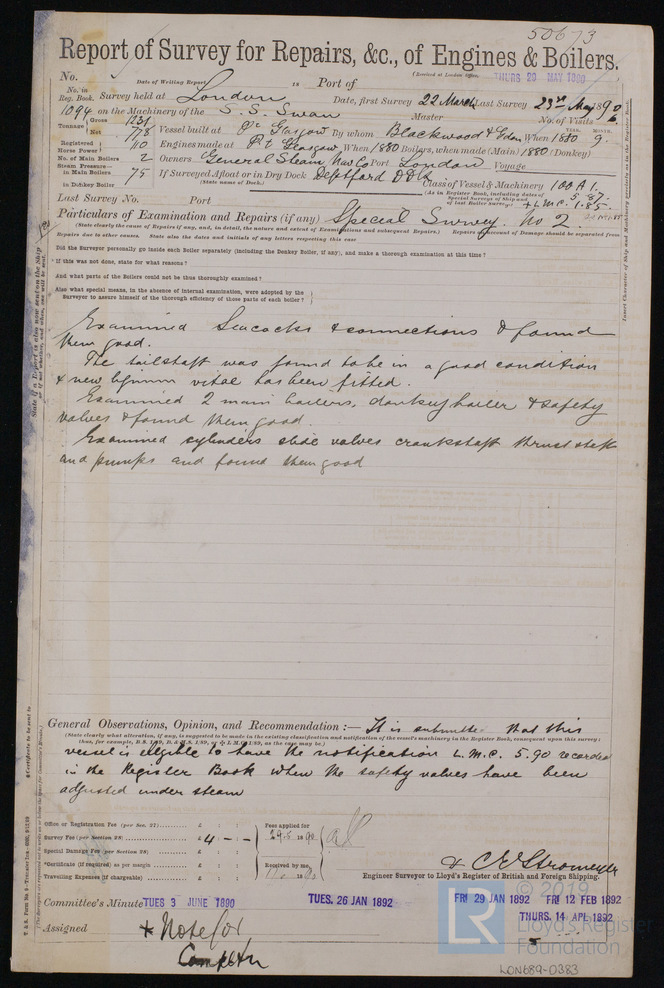 50673
Report of Survey for Repairs, &c., of Engines & Boilers.
No. Date of Writing Report 18 Port of (Received at London Office, THURS 29 MAY 1890
No. in Reg. Book. Survey held at London Date, first Survey 22 March Last Survey 23rd May 1890
1094 on the Machinery of the S.S. Swan Master No. of Visits 6
Tonnage Gross 1231 Net 778 Vessel built at Pt Glasgow By whom Blackwood & Gordon When 1880 YEAR. MONTH. 9.
Registered Horse Power 110 Engines made at Pt Glasgow When 1880 Boilers, when made (Main) 1880 (Donkey)
No. of Main Boilers 2 Owners General Steam Nav Co Port London Voyage
Steam Pressure in Main Boilers 75 If Surveyed Afloat or in Dry Dock Deptford D Dk Class of Vessel & Machinery 100 A 1.
(State name of Dock.) (As in Register Book, including dates of Special Surveys of Ship and of last Boiler survey) 5. 87. + L.M.C. 1.85.
in Donkey Boiler
Last Survey No. Port
Particulars of Examination and Repairs (if any) Special Survey. No 2.
(State clearly the cause of Repairs if any, and, in detail, the nature and extent of Examinations and subsequent Repairs.) Repairs on account of Damage should be separated from
Repairs due to other causes. State also the dates and initials of any letters respecting this case
Did the Surveyor personally go inside each Boiler separately (including the Donkey Boiler, if any), and make a thorough examination at this time?
If this was not done, state for what reasons?
And what parts of the Boilers could not be thus thoroughly examined?
Also what special means, in the absence of internal examination, were adopted by the
Surveyor to assure himself of the thorough efficiency of those parts of each boiler?
Examined Seacocks & connections & found
them good.
The tailshaft was found to be in a good condition
& new lignum vitae has been fitted.
Examined 2 main boilers, donkey boiler & safety
valves & found them good.
Examined cylinders slide valves crankshaft thrust shaft
and pumps and found them good
General Observations, Opinion, and Recommendation :— It is submitted that this
(State clearly what alteration, if any, is suggested to be made in the existing classification and notification of the vessel's machinery in the Register Book, consequent upon this survey;
thus, for example, B.S. 1/89, D. & M.S. 1/89, or + L.M.C. 1/89, as the case may be.)
vessel is eligible to have the notification L.M.C. 5.90 recorded
in the Register Book when the safety valves have been
adjusted under steam
Office or Registration Fee (per Sec. 27) £ : : Fees applied for
Survey Fee (per Section 28) £ 4 – – 29.5 1890
Special Damage Fee (per Section 28) £ : :
*Certificate (if required) as per margin £ : : Received by me,
Travelling Expenses (if chargeable) £ : :
C E Stromeyer
Engineer Surveyor to Lloyd's Register of British and Foreign Shipping.
Committee's Minute TUES 3 JUNE 1890 TUES. 26 JAN 1892 FRI 29 JAN 1892 FRI 12 FEB 1892
THURS. 14 APL 1892
Assigned * Note for
© 2019
LR Lloyd's Register
Foundation
LON689-0383